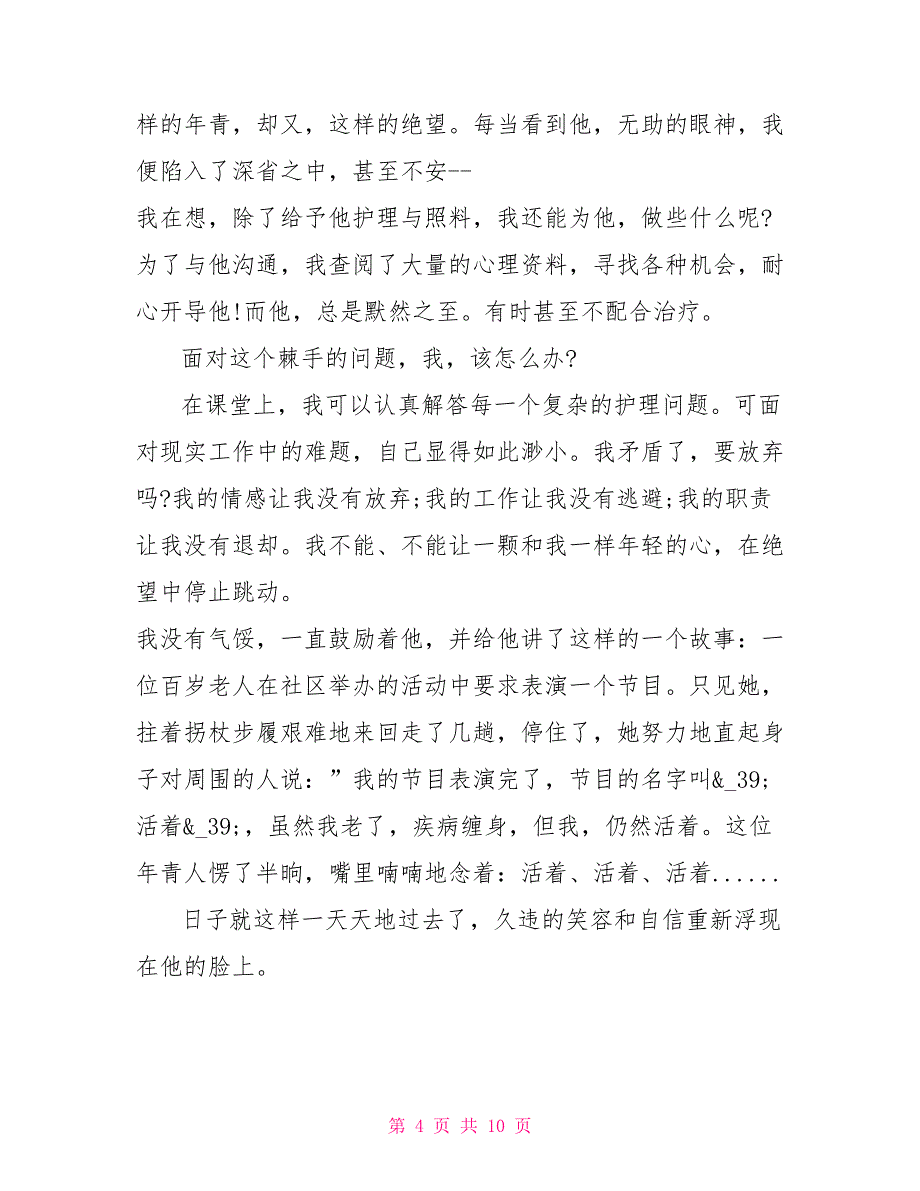 样的年青，却又，这样的绝望。每当看到他，无助的眼神，我
便陷入了深省之中，甚至不安--
我在想，除了给予他护理与照料，我还能为他，做些什么呢?
为了与他沟通，我查阅了大量的心理资料，寻找各种机会，耐
心开导他!而他，总是默然之至。有时甚至不配合治疗。
面对这个棘手的问题，我，该怎么办?
在课堂上，我可以认真解答每一个复杂的护理问题。可面
对现实工作中的难题，自己显得如此渺小。我矛盾了，要放弃
吗?我的情感让我没有放弃;我的工作让我没有逃避;我的职责
让我没有退却。我不能、不能让一颗和我一样年轻的心，在绝
望中停止跳动。
我没有气馁，一直鼓励着他，并给他讲了这样的一个故事：一
位百岁老人在社区举办的活动中要求表演一个节目。只见她，
拄着拐杖步履艰难地来回走了几趟，停住了，她努力地直起身
子对周围的人说：”我的节目表演完了，节目的名字叫&_39;
活着&_39;，虽然我老了，疾病缠身，但我，仍然活着。这位
年青人愣了半晌，嘴里喃喃地念着：活着、活着、活着......
日子就这样一天天地过去了，久违的笑容和自信重新浮现
在他的脸上。
第 4 页 共 10 页